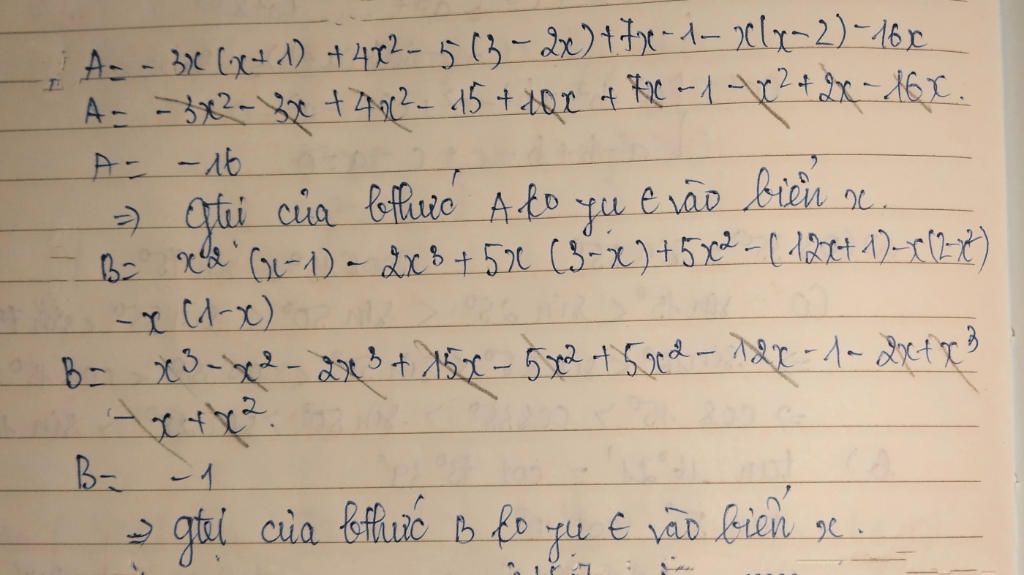 A = - 3x (x+1) + 4x² - 5 (3 - 2x) + 7x - 1 - x(x-2) - 16x
A = - 3x² - 3x + 4x² - 15 + 10x + 7x - 1 - x² + 2x - 16x.
A = - 16
⇒ gtrị của bthức A ko ∈ vào biến x.
B = x² (x-1) - 2x³ + 5x (3-x) + 5x² - (12x+1) - x(2-x²)
- x (1-x)
B = x³ - x² - 2x³ + 15x - 5x² + 5x² - 12x - 1 - 2x + x³
- x + x².
B = - 1
⇒ gtrị của bthức B ko ∈ vào biến x.